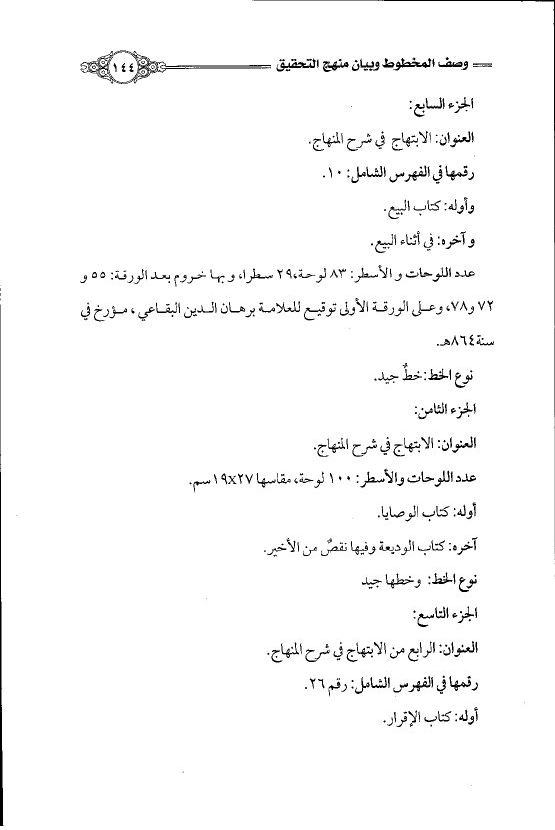 وصف المخطوط وبيان منهج التحقيق
١٤٤
الجزء السابع:
العنوان: الابتهاج في شرح المنهاج.
رقمها في الفهرس الشامل: ١٠.
وأوله: كتاب البيع.
و آخره: في أثناء البيع.
عدد اللوحات و الأسطر: ٨٣ لوحة،٢٩ سطرا، و بها خروم بعد الورقة: ٥٥ و
٧٢ و٧٨، وعلى الورقة الأولى توقيع للعلامة برهان الدين البقاعي ، مؤرخ في
سنة ٨٦٤هـ.
نوع الخط: خطٌ جيد.
الجزء الثامن:
العنوان: الابتهاج في شرح المنهاج.
عدد اللوحات والأسطر: ١٠٠ لوحة، مقاسها ١٩x٢٧سم.
أوله: كتاب الوصايا.
آخره: كتاب الوديعة وفيها نقصٌ من الأخير.
نوع الخط: وخطها جيد
الجزء التاسع:
العنوان: الرابع من الابتهاج في شرح المنهاج.
رقمها في الفهرس الشامل: رقم ٢٦.
أوله: كتاب الإقرار.